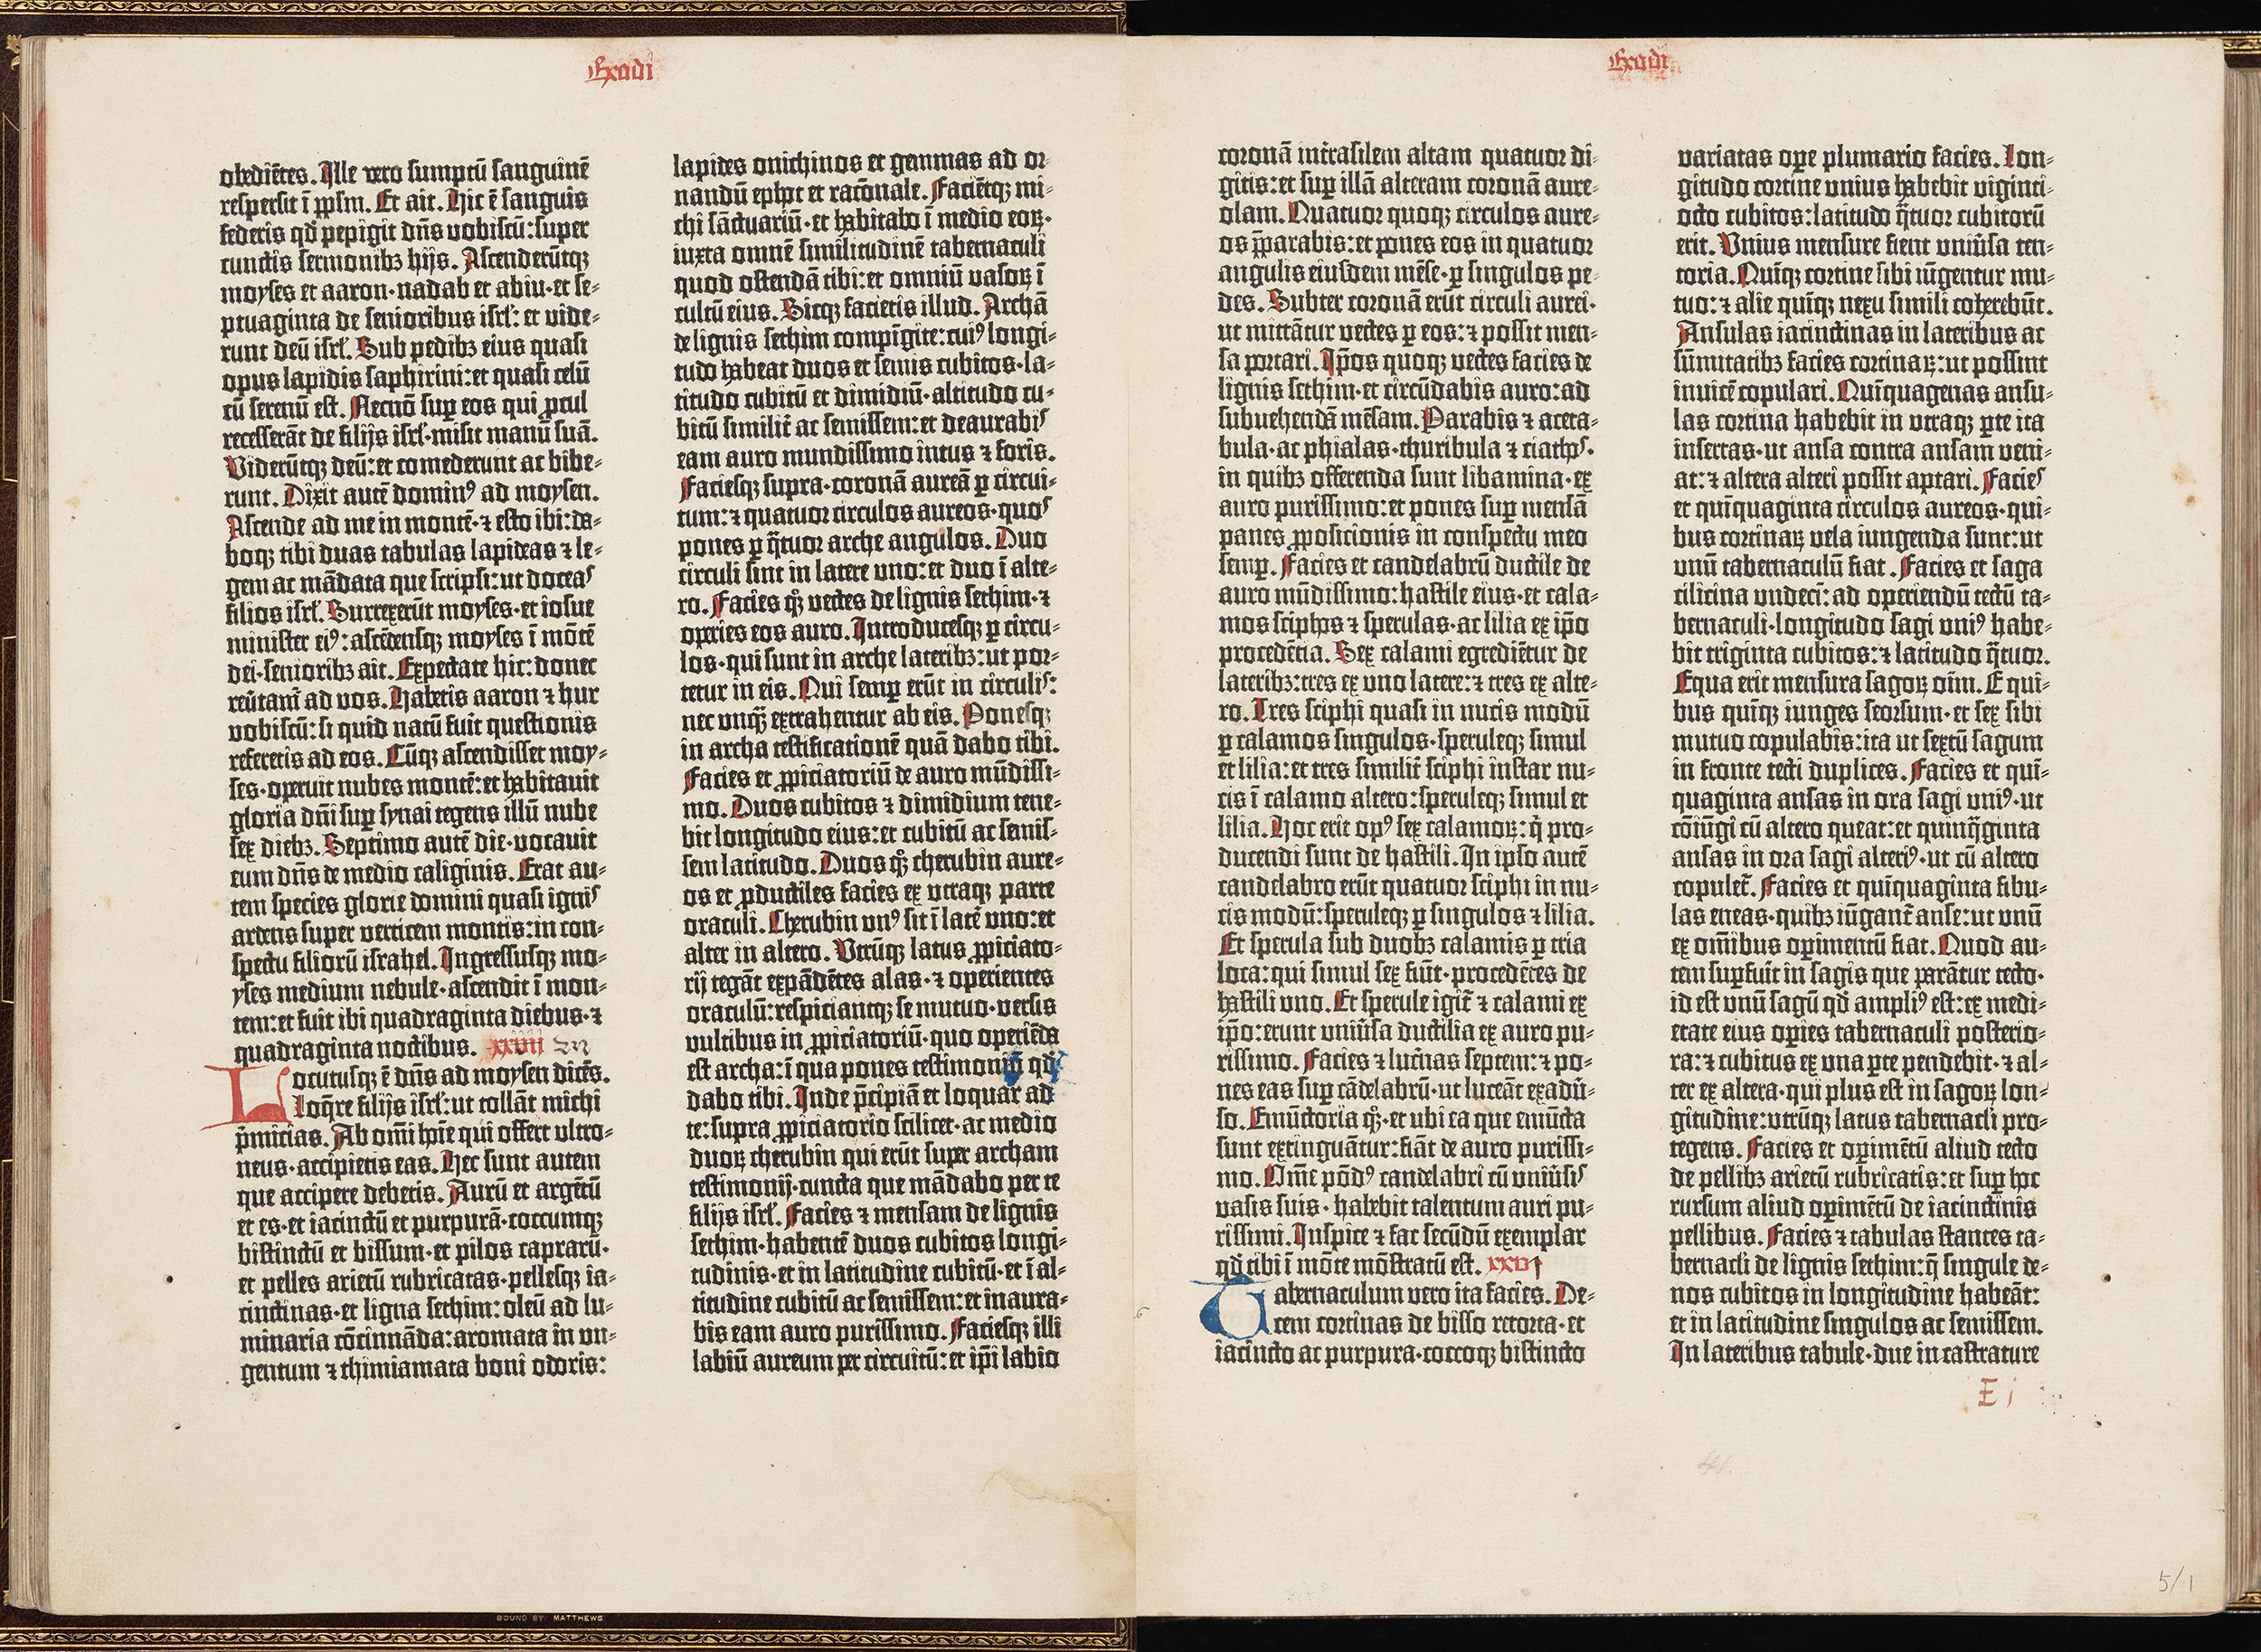 Exodi
obediētes. Ille vero sumptū sanguinē
respersit ī pp̄lm. Et ait. Hic ē sanguis
federis qđ pepigit dn̄s vobiscū: super
cunctis sermonibꝫ hijs. Ascenderūtqꝫ
moyses et aaron·nadab et abiu·et se-
ptuaginta de senioribus isrl̄: et vide-
runt deū isrl̄. Sub pedibꝫ eius quasi
opus lapidis saphirini: et quasi celū
cū serenū est. Nec nō suꝑ eos qui ꝓcul
recesserāt de filijs isrl̄·misit manū suā.
Viderūtqꝫ deū: et comederunt ac bibe-
runt. Dixit autē dominꝰ ad moysen.
Ascende ad me in montē·⁊ esto ibi: da-
boqꝫ tibi duas tabulas lapideas ⁊ le-
gem ac mādata que scripsi: ut doceas
filios isrl̄. Surrexerūt moyses·et iosue
minister eiꝰ: ascēdensqꝫ moyses ī mōtē
dei·senioribꝫ ait. Expectate hic: donec
reūtam̄ ad vos. Habetis aaron ⁊ hur
vobiscū: si quid natū fuit questionis
referetis ad eos. Cūqꝫ ascendisset moy-
ses·operuit nubes montē: et habitauit
gloria dn̄i suꝑ synai tegens illū nube
sex diebꝫ. Septimo autē die·vocauit
eum dn̄s de medio caliginis. Erat au-
tem species glorie domini quasi ignis
ardens super verticem montis: in con-
spectu filiorū israhel. Ingressusqꝫ mo-
yses medium nebule·ascendit ī mon-
tem: et fuit ibi quadraginta diebus·⁊
quadraginta noctibus. xxviii
Locutusqꝫ ē dn̄s ad moysen dicēs.
Loq̄re filijs isrl̄: ut tollāt michi
p̄micias. Ab om̄i hoīe qui offert ultro-
neus·accipietis eas. Hec sunt autem
que accipere debetis. Aurū et argētū
et es·et iacinctū et purpurā·coccumqꝫ
bistinctū et bissum·et pilos caprarū·
et pelles arietū rubricatas·pellesqꝫ ia-
cinctinas·et ligna sethim: oleū ad lu-
minaria cōcinnāda: aromata in vn-
gentum ⁊ thimiamata boni odoris:
lapides onichinos et gemmas ad or-
nandū ephot et racōnale. Faciētqꝫ mi-
chi sāctuariū·et habitabo ī medio eoꝝ·
iuxta omnē similitudinē tabernaculi
quod ostendā tibi: et omniū vasoꝝ ī
cultū eius. Sicqꝫ facietis illud. Archā
de lignis sethim compīgite: cuiꝰ longi-
tudo habeat duos et semis cubitos·la-
titudo cubitū et dimidiū·altitudo cu-
bitū similit̄ ac semissem: et deaurabis
eam auro mundissimo intus ⁊ foris.
Faciesqꝫ supra·coronā aureā ꝑ circui-
tum: ⁊ quatuor circulos aureos·quos
pones ꝑ q̄tuor arche angulos. Duo
circuli sint in latere uno: et duo ī alte-
ro. Facies qͦꝫ vectes de lignis sethim·⁊
operies eos auro. Introducesqꝫ ꝑ circu-
los·qui sunt in arche lateribꝫ: ut por-
tetur in eis. Qui semꝑ erūt in circulis:
nec unq̄ꝫ extrahentur ab eis. Ponesqꝫ
in archa testificationē quā dabo tibi.
Facies et ꝓpiciatoriū de auro mūdissi-
mo. Duos cubitos ⁊ dimidium tene-
bit longitudo eius: et cubitū ac semis-
sem latitudo. Duos qͦꝫ cherubin aure-
os et ꝓductiles facies ex vtraqꝫ parte
oraculi. Cherubin vnꝰ sit ī late᷑ vno: et
alter in altero. Vtrūqꝫ latus ꝓpiciato-
rij tegāt expādētes alas·⁊ operientes
oraculū: respiciantqꝫ se mutuo·versis
vultibus in ꝓpiciatoriū·quo operiēda
est archa: ī qua pones testimoniū qđ
dabo tibi. Inde p̄cipiā et loquar ad
te: supra ꝓpiciatorio scilicet·ac medio
duoꝝ cherubin qui erūt super archam
testimonij·cuncta que mādabo per te
filijs isrl̄. Facies ⁊ mensam de lignis
sethim·habentē duos cubitos longi-
tudinis·et in latitudine cubitū·et ī al-
titudine cubitū ac semissem: et inaura-
bis eam auro purissimo. Faciesqꝫ illi
labiū aureum per circuitū: et ip̄i labio
BOUND BY MATTHEWS
Exodi
coronā int̄rasilem altam quatuor di-
gitis: et suꝑ illā alteram coronā aure-
olam. Quatuor quoqꝫ circulos aure-
os p̄parabis: et pones eos in quatuor
angulis eiusdem mēse·ꝑ singulos pe-
des. Subter coronā erūt circuli aurei·
ut mittātur vectes ꝑ eos: ⁊ possit men-
sa portari. Ip̄os quoqꝫ vectes facies de
lignis sethim·et circūdabis auro: ad
subuehendā mēsam. Parabis ⁊ aceta-
bula·ac phialas·thuribula ⁊ ciathos·
in quibꝫ offerenda sunt libamina·ex
auro purissimo: et pones suꝑ mensā
panes ꝓposicionis in conspectu meo
semꝑ. Facies et candelabrū ductile de
auro mūdissimo: hastile eius·et cala-
mos sciphos ⁊ sperulas·ac lilia ex ip̄o
procedētia. Sex calami egrediētur de
lateribꝫ: tres ex uno latere: ⁊ tres ex alte-
ro. Tres sciphi quasi in nucis modū
ꝑ calamos singulos·speruleqꝫ simul
et lilia: et tres similit̄ sciphi instar nu-
cis ī calamo altero: speruleqꝫ simul et
lilia. Hoc erit opꝰ sex calamoꝝ: q̄ pro-
ducendi sunt de hastili. In ipso autē
candelabro erūt quatuor sciphi in nu-
cis modū: speruleqꝫ ꝑ singulos ⁊ lilia.
Et sperula sub duobꝫ calamis ꝑ tria
loca: qui simul sex fiūt·procedētes de
hastili vno. Et sperule igit̄ ⁊ calami ex
ip̄o: erunt vniūsa ductilia ex auro pu-
rissimo. Facies ⁊ luc̄nas septem: ⁊ po-
nes eas suꝑ cādelabrū·ut luceāt ex adū-
so. Emūctoria qͦꝫ·et ubi ea que emūcta
sunt extinguātur: fiāt de auro purissi-
mo. Om̄e pōdꝰ candelabri cū vniūsis
vasis suis·habebit talentum auri pu-
rissimi. Inspice ⁊ fac secūdū exemplar
qđ tibi ī mōte mōstratū est. xxvi
Tabernaculum vero ita facies. De-
cem cortinas de bisso retorta·et
iacincto ac purpura·coccoqꝫ bistincto
variatas oꝑe plumario facies. Lon-
gitudo cortine vnius habebit viginti-
octo cubitos: latitudo q̄tuor cubitorū
erit. Vnius mensure fient vniūsa ten-
toria. Quīqꝫ cortine sibi iūgentur mu-
tuo: ⁊ alie quīqꝫ nexu simili coherebūt.
Ansulas iacinctinas in lateribus ac
sūmitatibꝫ facies cortinaꝝ: ut possint
inuicē copulari. Quīquagenas ansu-
las cortina habebit in utraqꝫ ꝑte ita
insertas·ut ansa contra ansam veni-
at: ⁊ altera alteri possit aptari. Facies
et quīquaginta circulos aureos·qui-
bus cortinaꝝ vela iungenda sunt: ut
unū tabernaculū fiat. Facies et saga
cilicina vndeci: ad operiendū tectū ta-
bernaculi·longitudo sagi vniꝰ habe-
bit triginta cubitos: ⁊ latitudo q̄tuor.
Equa erit mensura sagoꝝ oīm. E qui-
bus quīqꝫ iunges seorsum·et sex sibi
mutuo copulabis: ita ut sextū sagum
in fronte tecti duplices. Facies et quī-
quaginta ansas in ora sagi vniꝰ·ut
cōiūgi cū altero queat: et quinq̄ginta
ansas in ora sagi alteriꝰ·ut cū altero
copulet̄. Facies et quīquaginta fibu-
las eneas·quibꝫ iūgant̄ anse: ut unū
ex om̄ibus oꝑimentū fiat. Quod au-
tem suꝑfuīt in sagis que parātur tecto·
id est unū sagū qđ ampliꝰ est: ex medi-
etate eius oꝑies tabernaculi posterio-
ra: ⁊ cubitus ex una ꝑte pendebit·⁊ al-
ter ex altera·qui plus est in sagoꝝ lon-
gitudine: utrūqꝫ latus tabernacl̄i pro-
tegens. Facies et oꝑimētū aliud tecto
de pellibꝫ arietū rubricatis: et suꝑ hoc
rursum aliud oꝑimētū de iacinctinis
pellibus. Facies ⁊ tabulas stantes ta-
bernacl̄i de lignis sethim: q̄ singule de-
nos cubitos in longitudine habeāt:
et in latitudine singulos ac semissem.
In lateribus tabule·due incastrature
E i
41.
5/1